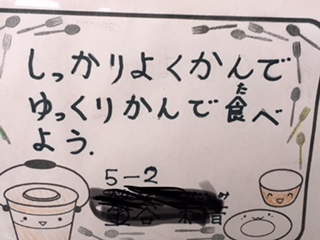 しっかりよくかんで
ゆっくりかんで食べ
よう.
5-2